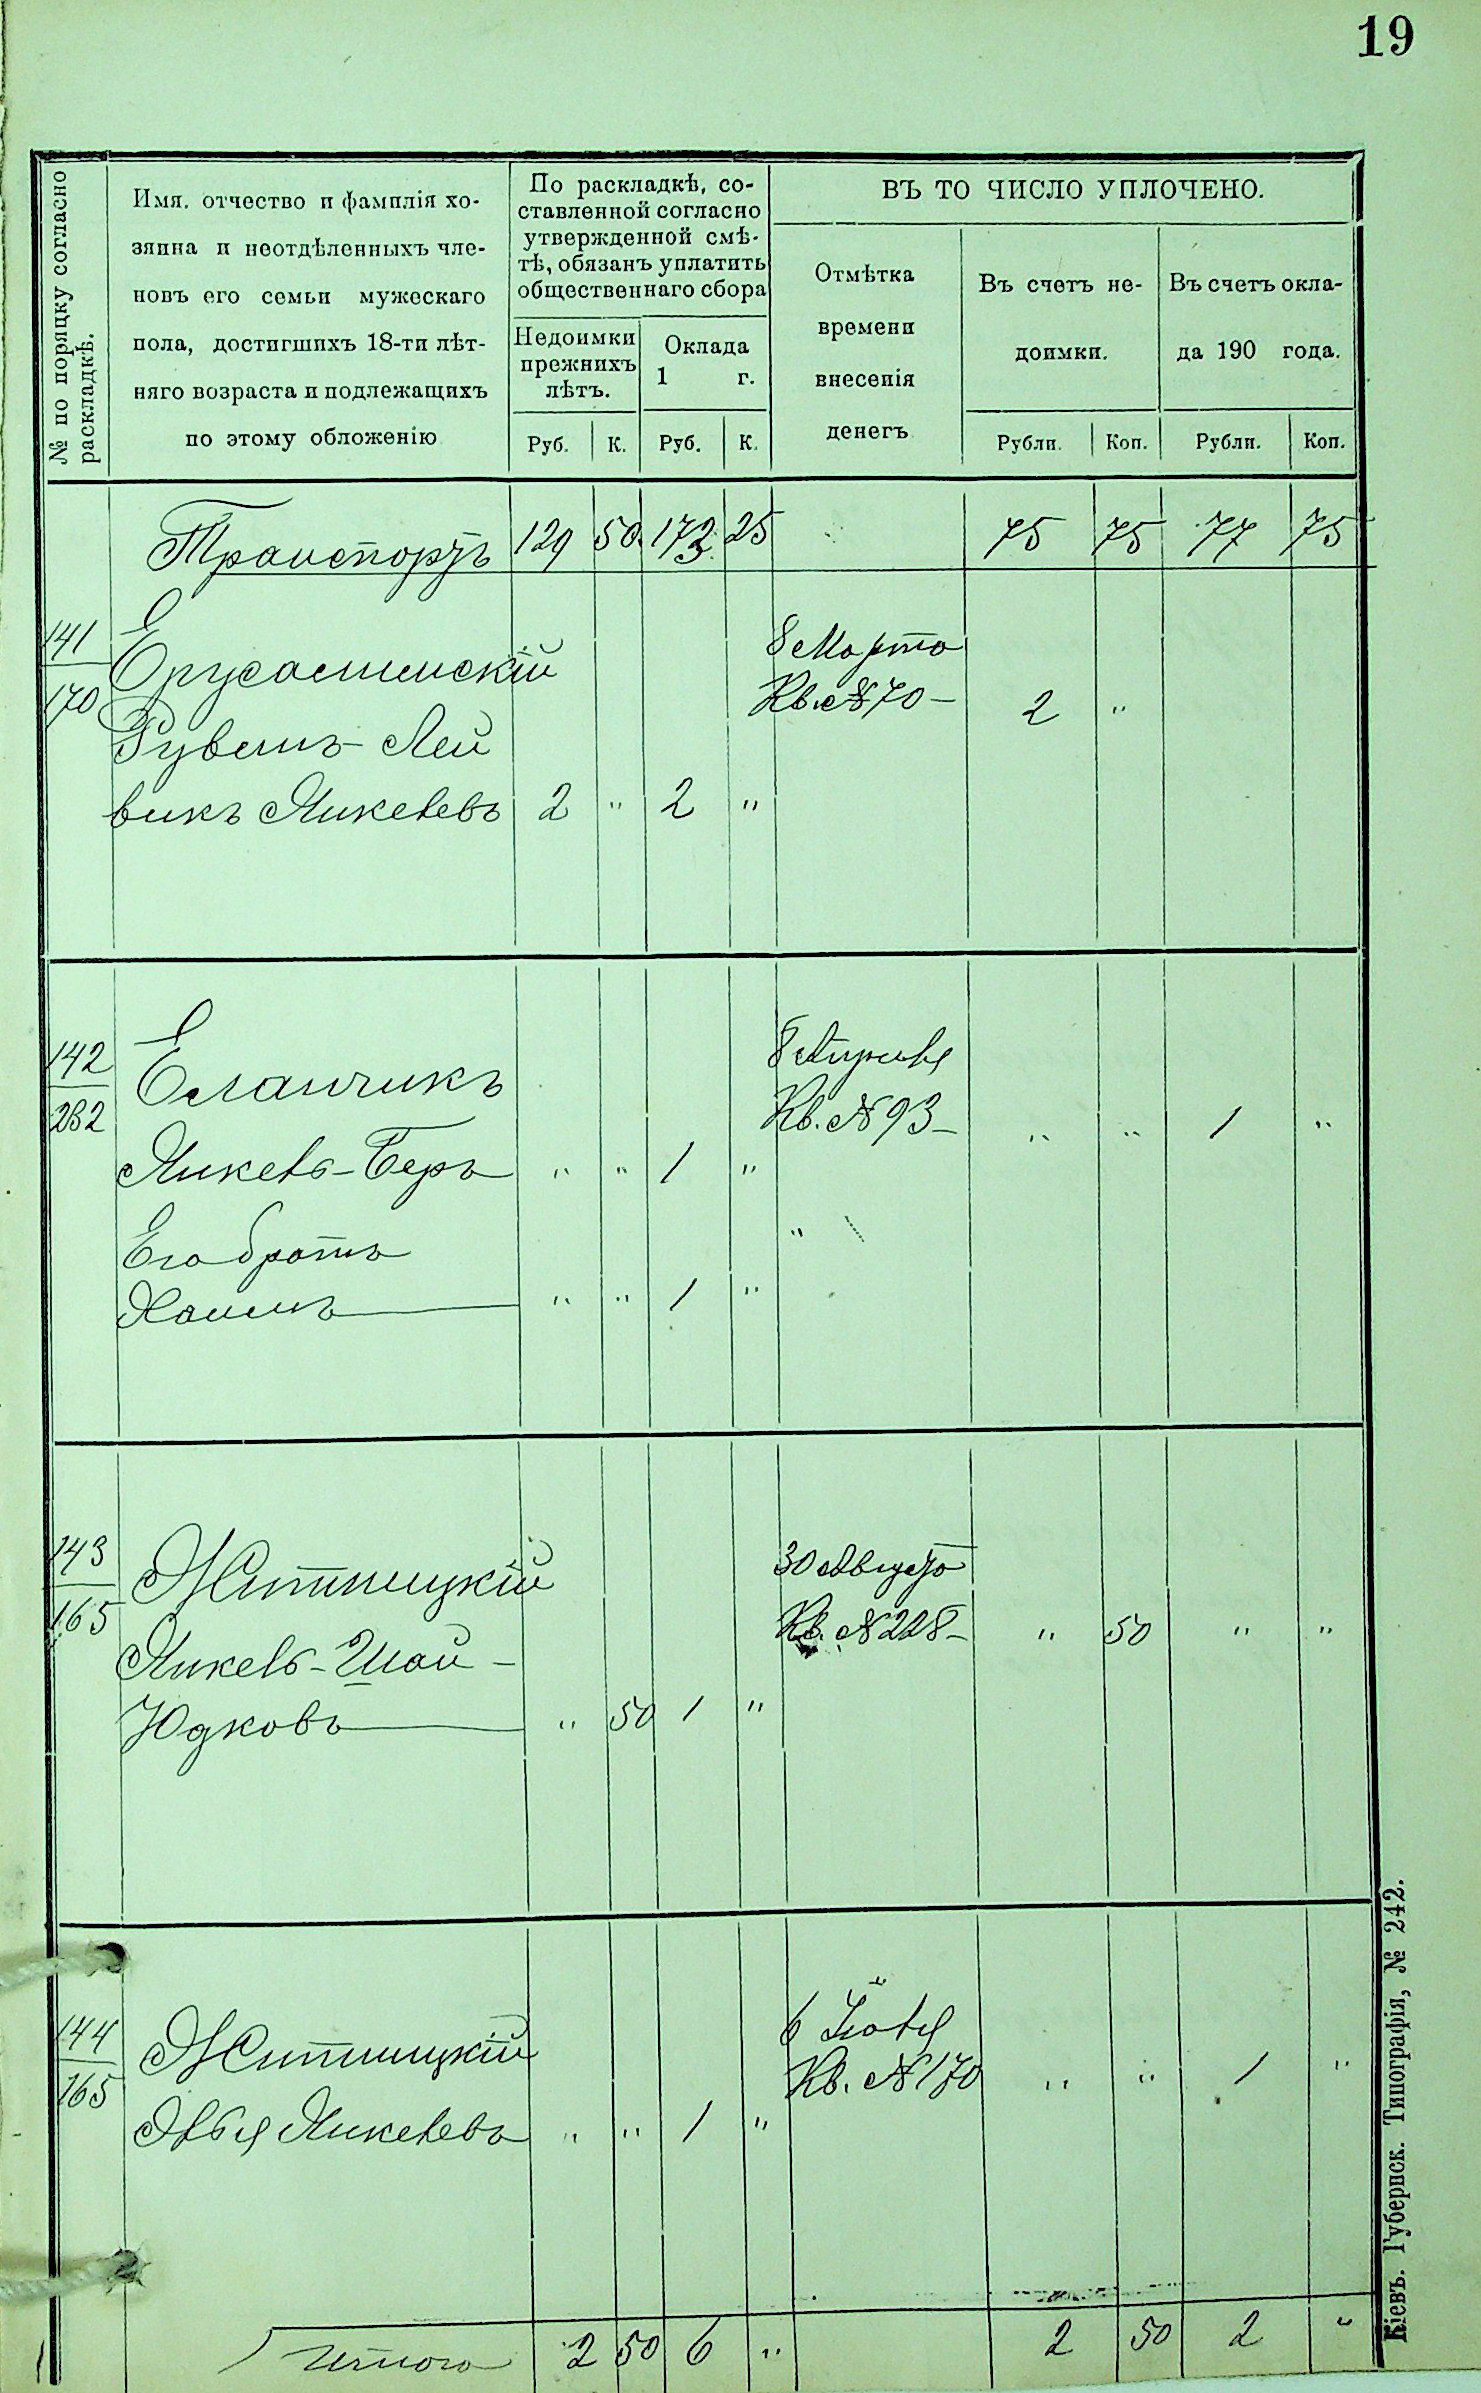 19
№ по порядку согласно раскладкѣ.
Имя, отчество и фамилія хо-
зяина и неотдѣленныхъ чле-
новъ его семьи мужескаго
пола, достигшихъ 18-ти лѣт-
няго возраста и подлежащихъ
по этому обложенію
По раскладкѣ, со-
ставленной согласно
утвержденной смѣ-
тѣ, обязанъ уплатить
общественнаго сбора
Недоимки
прежнихъ
лѣтъ.
Оклада
1 г.
Руб. К. Руб. К.
ВЪ ТО ЧИСЛО УПЛОЧЕНО.
Отмѣтка
времени
внесенія
денегъ
Въ счетъ не-
доимки.
Въ счетъ окла-
да 190 года.
Рубли. Коп. Рубли. Коп.
Транспортъ 129 50 173 25 75 75 77 75
141
170
Ерусалимскій
Рувенъ-Лей
викъ Янкелевъ 2 " 2 "
8 Марта
Кв. № 70 — 2 "
142
232
Еланчикъ
Янкель-Беръ " " 1 "
Его братъ
Хаимъ " " 1 "
8 Апрѣля
Кв. № 93 — " " 1 "
"
143
165
Житницкій
Янкель-Шая-
Юдковъ " 50 1 "
30 Августа
Кв. № 228 — " 50 " "
144
165
Житницкій
Янкелевъ " " 1 "
6 Іюля
Кв. № 170 " " 1 "
Итого 2 50 6 " 2 50 2 "
Кіевъ. Губернск. Типографія, № 242.